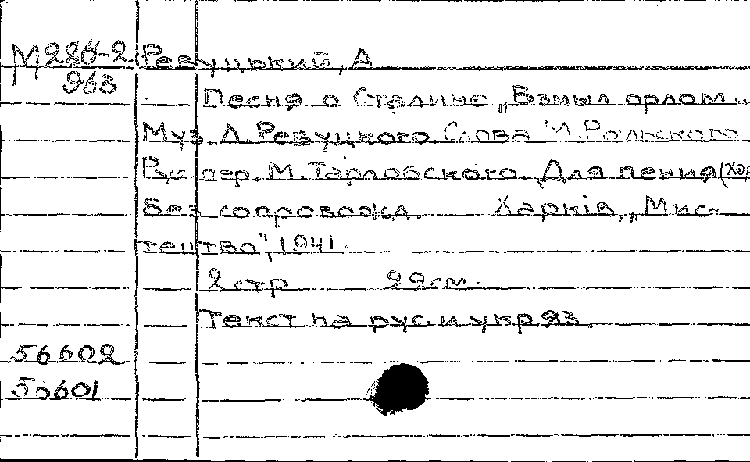 М 286-2 Ревуцький, А
963
Песня о Сталине „Взмыл орлом..
Муз. Л. Ревуцкого Слова М. Рыльского
Рус. пер. М. Тарловского. Для пения (хор)
без сопровожд. Харкiв, „Мис-
тецтво", 1941.
2 стр 22 см.
Текст на рус. и укр яз.
56602
55601